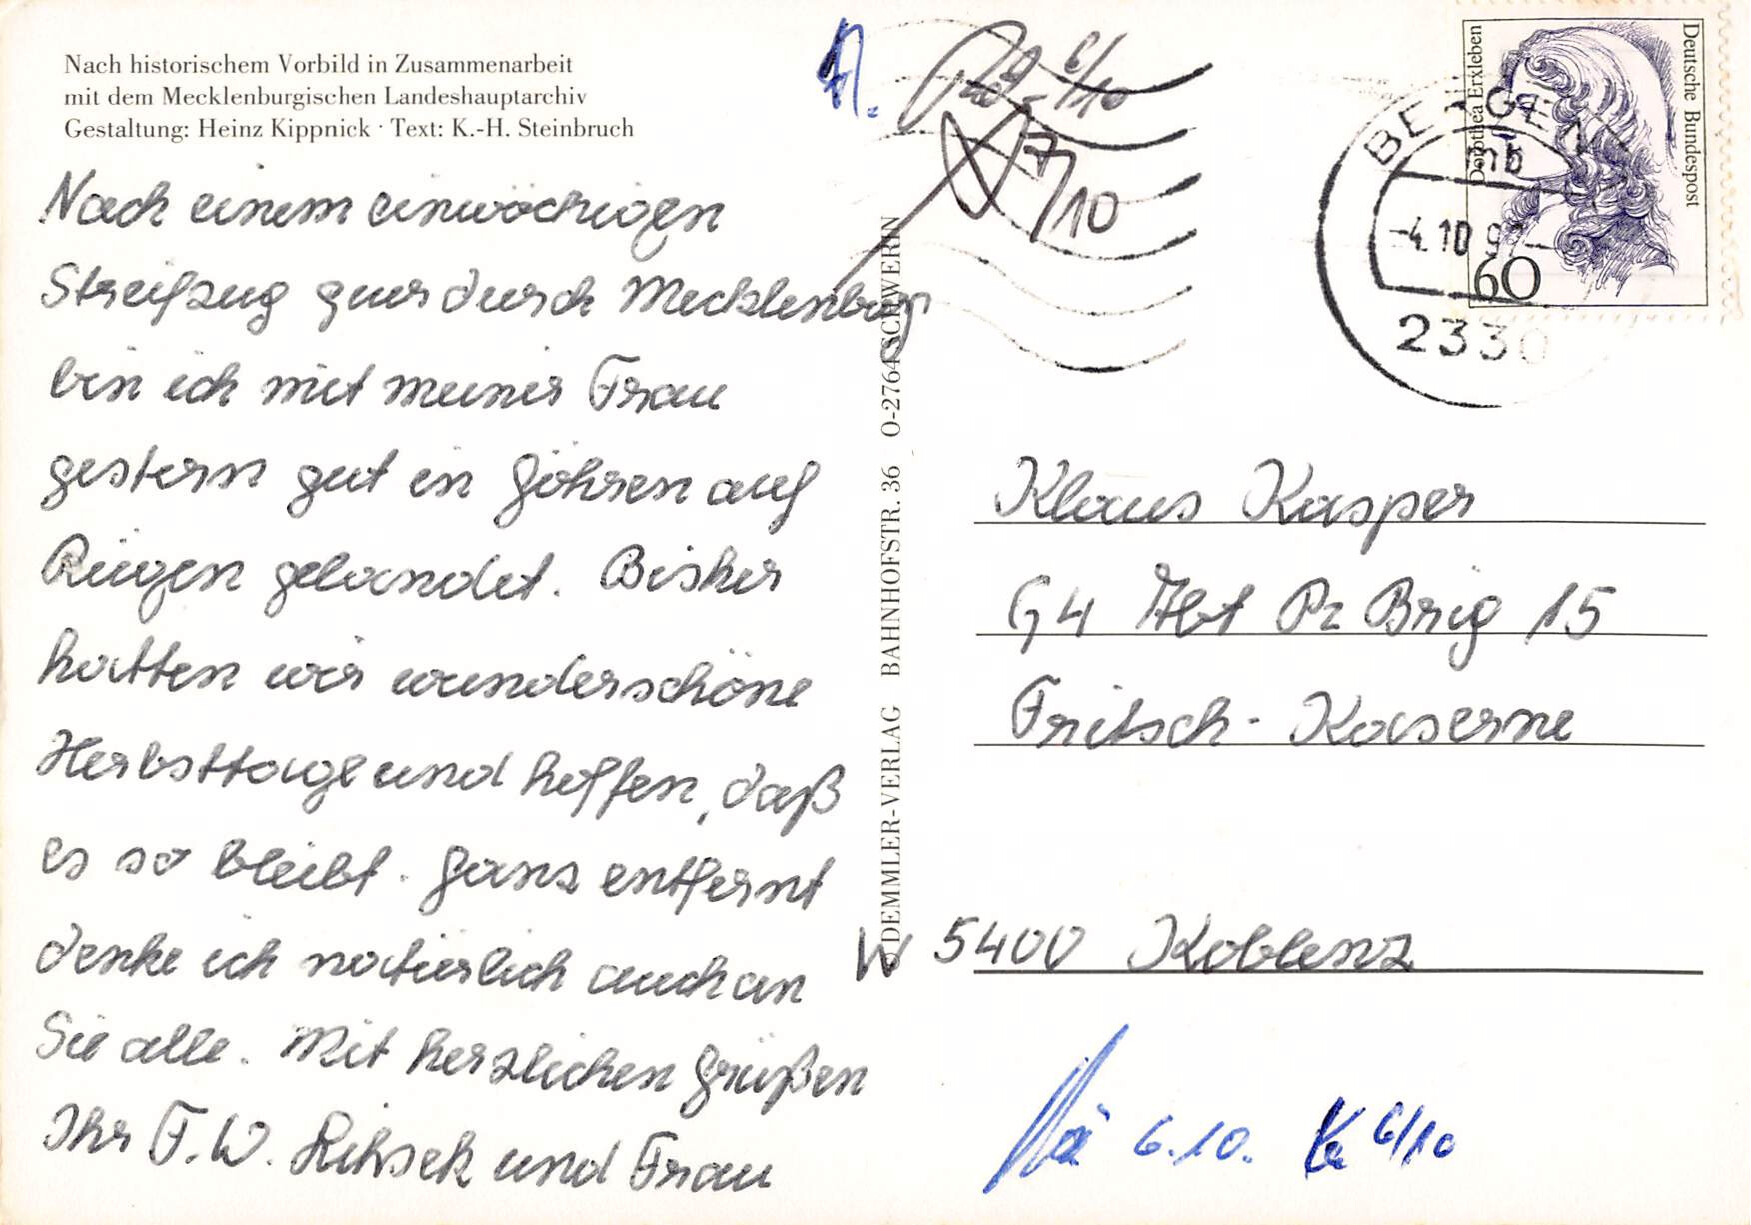 Nach historischem Vorbild in Zusammenarbeit
mit dem Mecklenburgischen Landeshauptarchiv
Gestaltung: Heinz Kippnick · Text: K.-H. Steinbruch
Nach einem einwöchigen
Streifzug quer durch Mecklenburg
bin ich mit meiner Frau
gestern gut in Göhren auf
Rügen gelandet. Bisher
hatten wir wunderschöne
Herbsttage und hoffen, daß
es so bleibt. Ganz entfernt
denke ich natürlich auch an
Sie alle. Mit herzlichen Grüßen
Ihr F.W. und Frau
DEMMLER-VERLAG BAHNHOFSTR. 36 O-2764 SCHWERIN
6/10
7/10
Dorothea Erxleben
Deutsche Bundespost
60
BERGEN
mb
-4.10.92-
2330
Klaus Kasper
G4 Abt Pz Brig 15
Fritsch-Kaserne
W 5400 Koblenz
6.10. 6/10